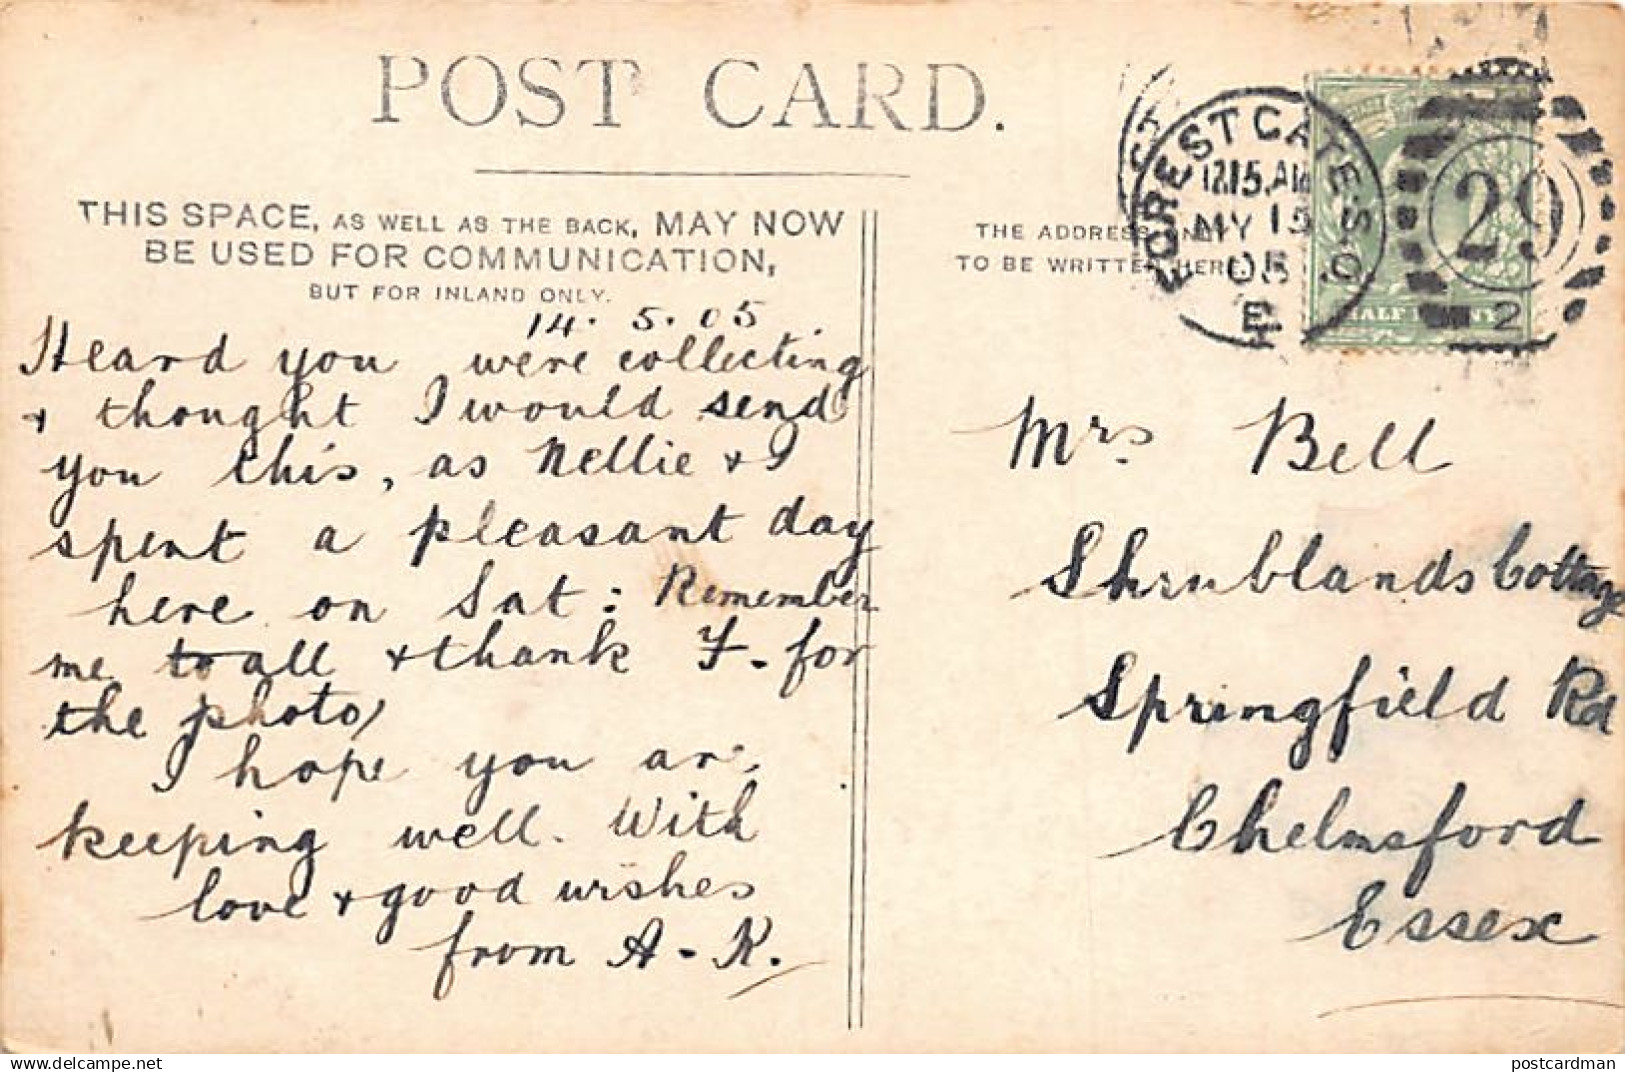 POST CARD.
THIS SPACE, AS WELL AS THE BACK, MAY NOW
BE USED FOR COMMUNICATION,
BUT FOR INLAND ONLY.
14. 5. 05
Heard you were collecting
+ thought I would send
you this, as Nellie + I
spent a pleasant day
here on Sat: Remember
me to all + thank F. for
the photo,
I hope you are
keeping well. With
love + good wishes
from A-K.
THE ADDRESS ONLY
TO BE WRITTEN HERE
FOREST GATE S.O.
12.15.AM
MY 15
05
E
29
2
HALF PENNY
Mrs. Bell
Shrublands Cottage
Springfield Rd
Chelmsford
Essex
delcampe.net
postcardman